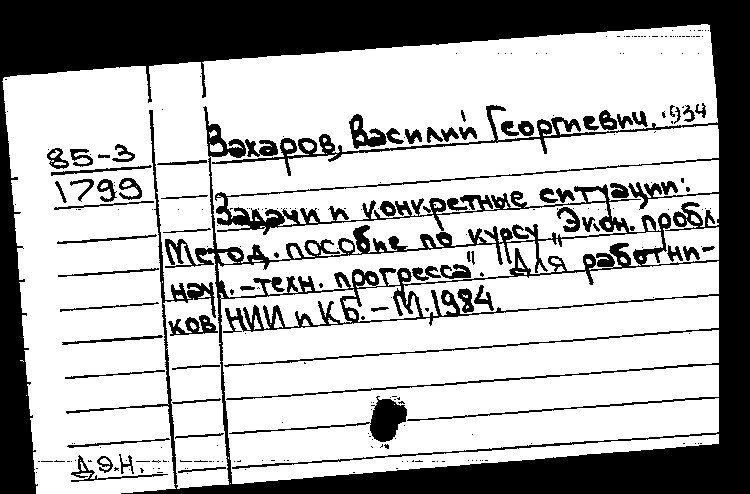 Захаров, Василий Георгиевич. 1934
85-3
1799
Задачи и конкретные ситуации:
Метод. пособие по курсу „Экон. пробл.
науч.-техн. прогресса“. Для работни-
ков НИИ и КБ. – М., 1984.
Д.Э.Н.